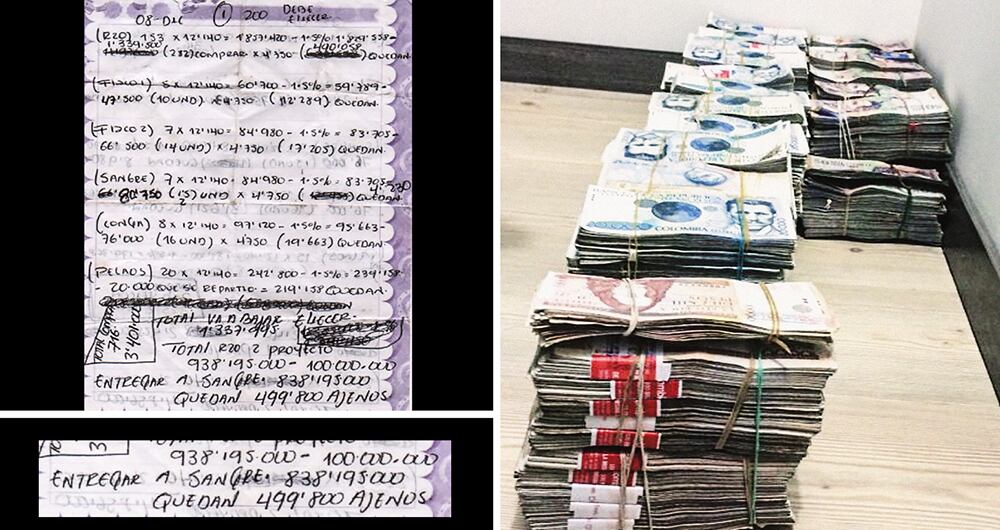 08-DIC ① 200 DEBE
ELIECER
(R20) 153 x 12'140 = 1'857'420 - 1.5% 1'829'558 -
1'339'500 (282) COMPRAR x 4'750 (490'058) QUEDAN
(FISCO 1) 5 x 12'140 = 60'700 - 1.5% = 59'789 -
47'500 (10 UND) x 4'750 (12'289) QUEDAN
(FISCO 2) 7 x 12'140 = 84'980 - 1.5% = 83'705 -
66'500 (14 UND) x 4'750 (17'205) QUEDAN
(SANGRE) 7 x 12'140 = 84'980 - 1.5% = 83'705 -
80'750 UND x 4'750 QUEDAN
(CONGA) 8 x 12'140 = 97'120 - 1.5% = 95'663 -
76'000 (16 UND) x 4750 (19'663) QUEDAN
(PELAOS) 20 x 12'140 = 242'800 - 1.5% = 239'158
- 20.000 QUE SE REPARTIO = 219'158 QUEDAN
TOTAL VA A BAJAR ELIECER
1'337.995
TOTAL COMPRAR
716
3'401.000
TOTAL R20 2 PROYECTO
938'195.000 - 100'000.000
ENTREGAR A SANGRE. 838'195000
QUEDAN 499'800 AJENOS
3
938'195.000 - 100'000.000
ENTREGAR A SANGRE. 838'195000
QUEDAN 499'800 AJENOS
REPUBLICA
COLOMBIA